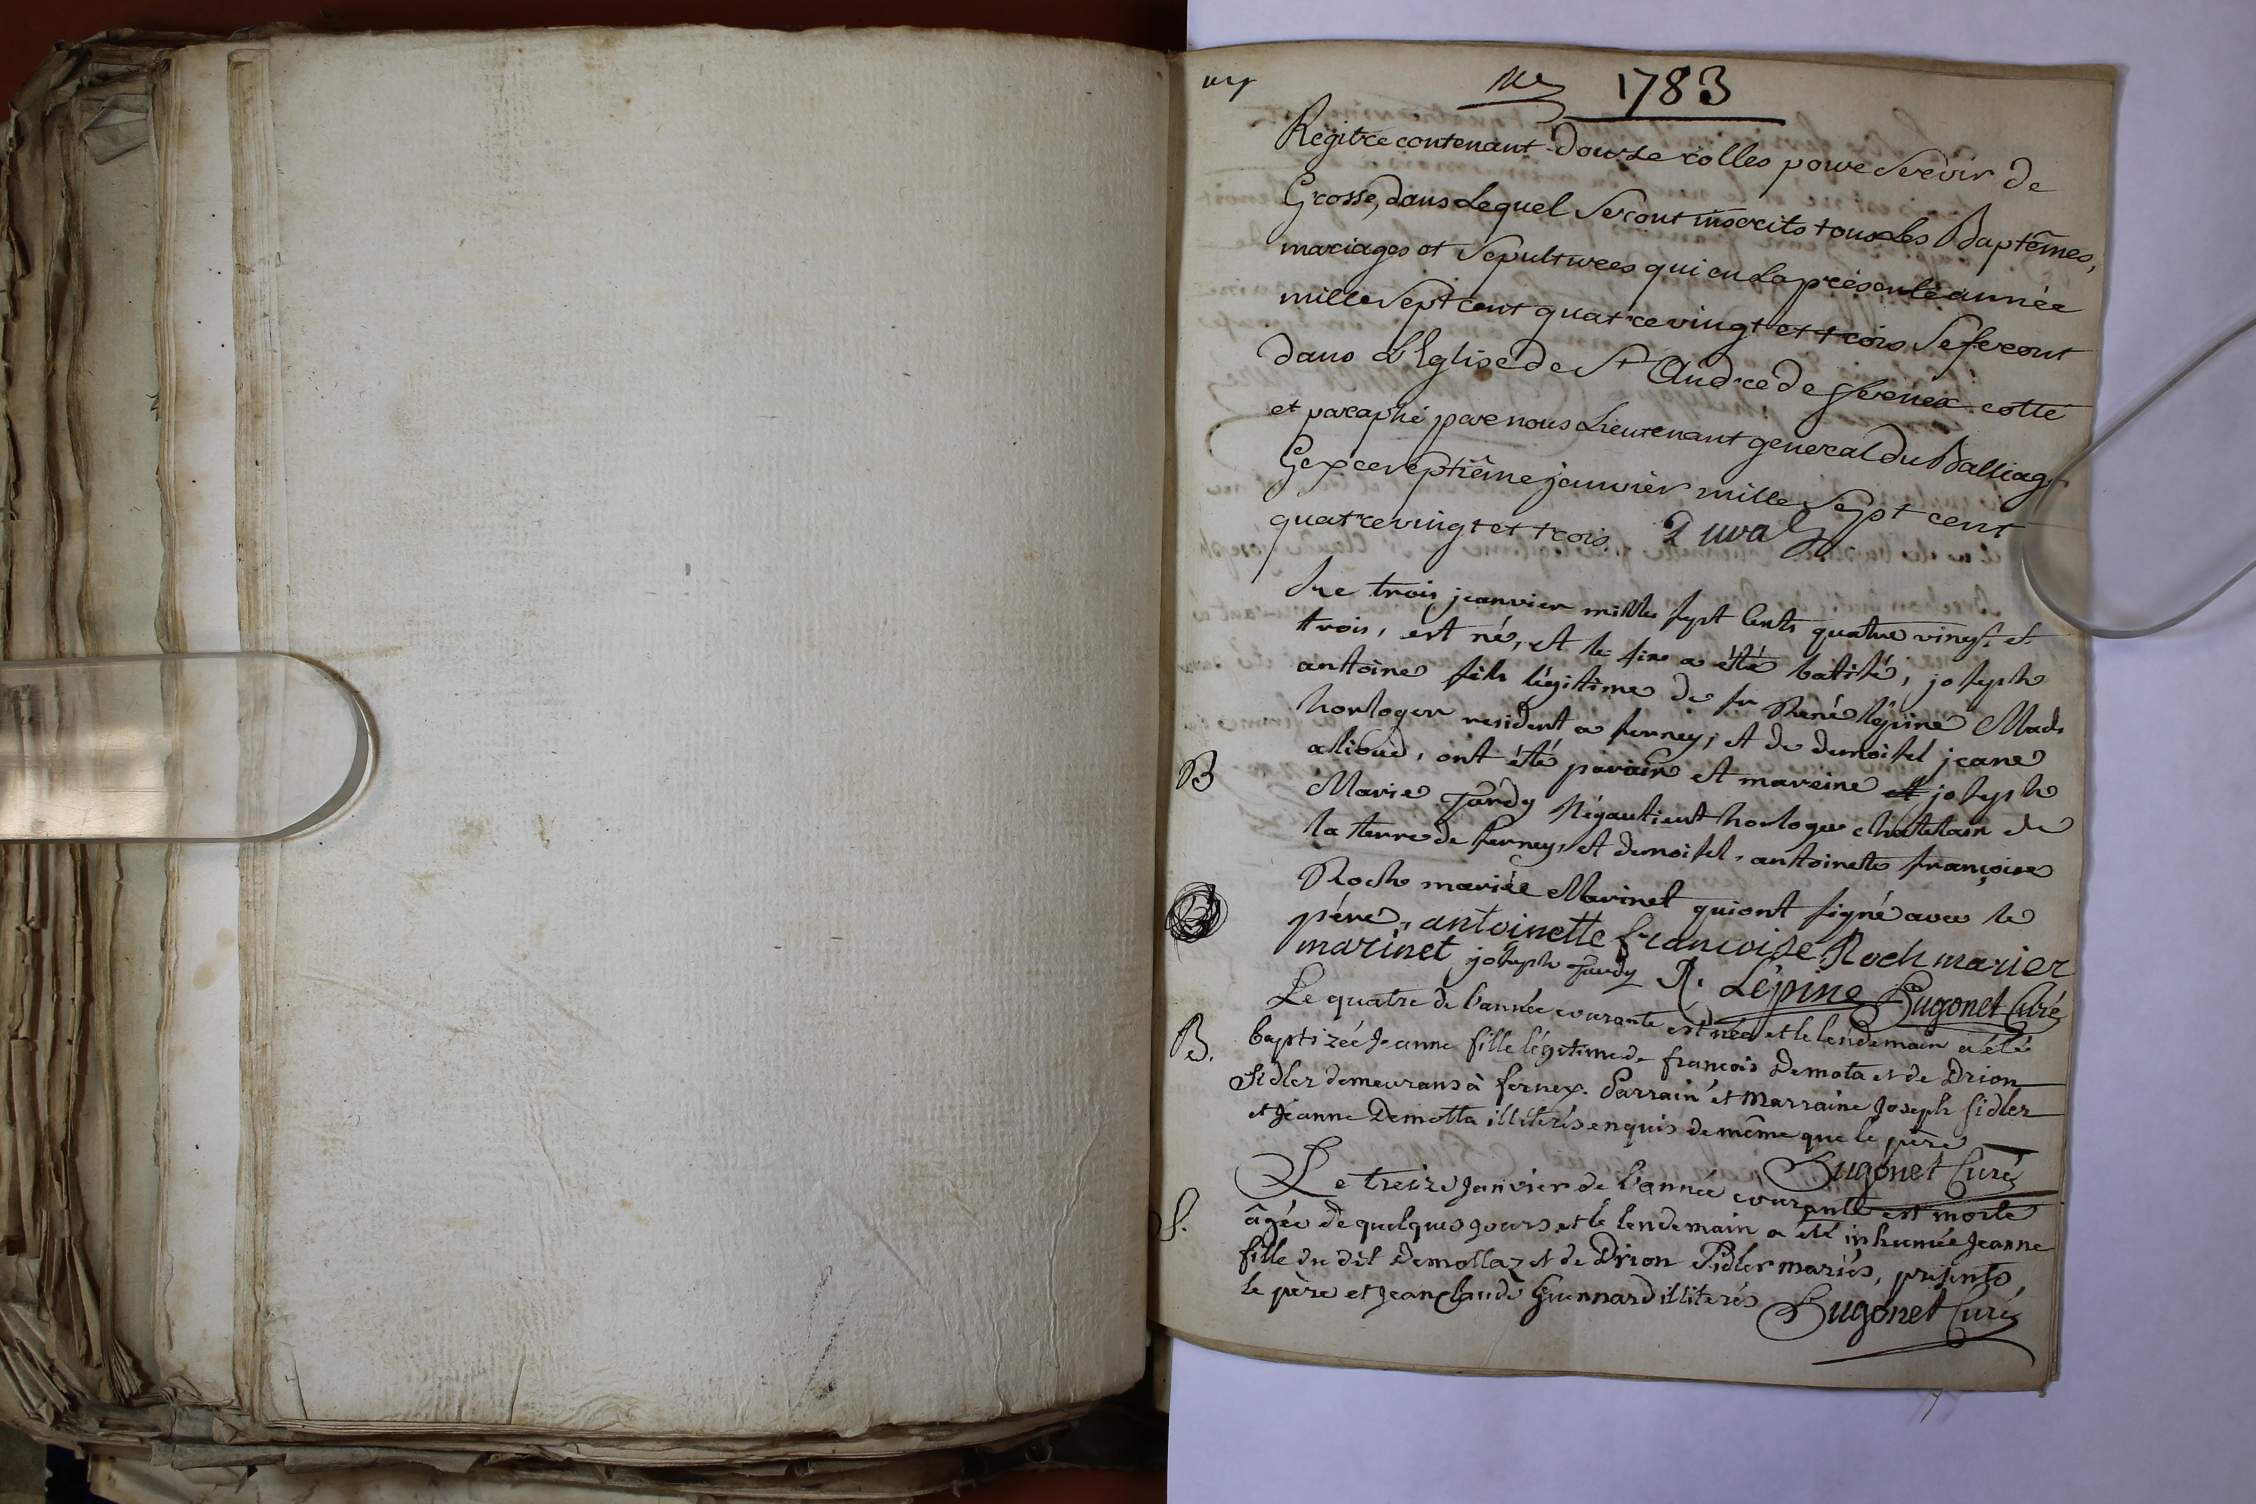 1783
Regitre contenant douze rolles pour servir de
Grosse, dans Lequel seront inscrits tous les Baptêmes,
mariages et sepultures qui en La présente année
mille sept cent quatre vingt et trois se feront
dans L'Eglise de St André de ferneix cotté
et paraphé par nous Lieutenant general du Balliag
Gex ce septiême janvier mille sept cent
quatre vingt et trois. Duval
Le trois jeanvier mille sept cents quatre vingt et
trois, est né, et le six a été batisé, joseph
antoine fils légitime de sr René lépine Md
horloger resident a ferney, et de demoisel jeane
alibud, ont été parain et mareine et joseph
B
Marie Tardy Négautient horloger chatelain de
la terre de ferney, et demoisel antoinete françoise
Roch mariée Marinet qui ont signé avec le
père, antoinette francoise Roch marier
marinet joseph Tardy R. Lépine Hugonet Curé
Le quatre de l'année courante est née et le lendemain a été
B.
baptizée Jeanne fille légitime de francois Demota et de Drion
Sidler demeurans à fernex. Parrain et Marraine Joseph Sidler
et Jeanne Demotta illiterés enquis de même que le père
Hugonet Curé
Le treize Janvier de l'année courante est morte
S.
âgée de quelques jours et le lendemain a été inhumée Jeanne
fille du dit Demottaz et de Drion Sidler mariés, présents
le père et Jean Claude Guennard illiterés Hugonet Curé